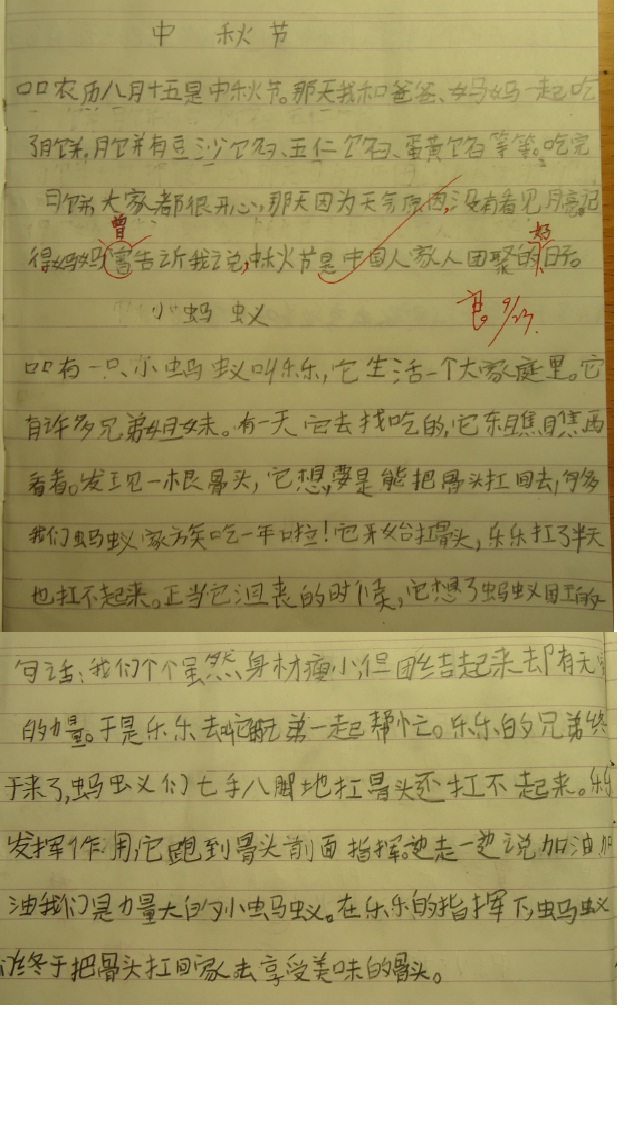 中秋节
口口农历八月十五是中秋节。那天我和爸爸、妈妈一起吃
了月饼,月饼有豆沙馅、五仁馅、蛋黄馅等等。吃完
月饼大家都很开心,那天因为天气原因,没有看见月亮。记
曾
得妈妈告诉我说,中秋节是中国人家人团聚的日子。
良 9/23.
小蚂蚁
口口有一只小蚂蚁叫乐乐,它生活一个大家庭里。它
有许多兄弟姐妹。有一天它去找吃的,它东瞧瞧西
看看。发现一根骨头,它想,要是能把骨头扛回去,够多
我们蚂蚁家族吃一年啦!它开始扛骨头,乐乐扛了半天
也扛不起来。正当它沮丧的时候,它想了蚂蚁国王的
句话:我们个个虽然身材瘦小,但团结起来却有无
的力量。于是乐乐去叫它的兄弟一起帮忙。乐乐的兄弟终
于来了,蚂蚁们七手八脚地扛骨头还扛不起来。乐乐
发挥作用,它跑到骨头前面指挥。边走一边说加油加
油我们是力量大的小蚂蚁。在乐乐的指挥下,蚂蚁
们终于把骨头扛回家去享受美味的骨头。